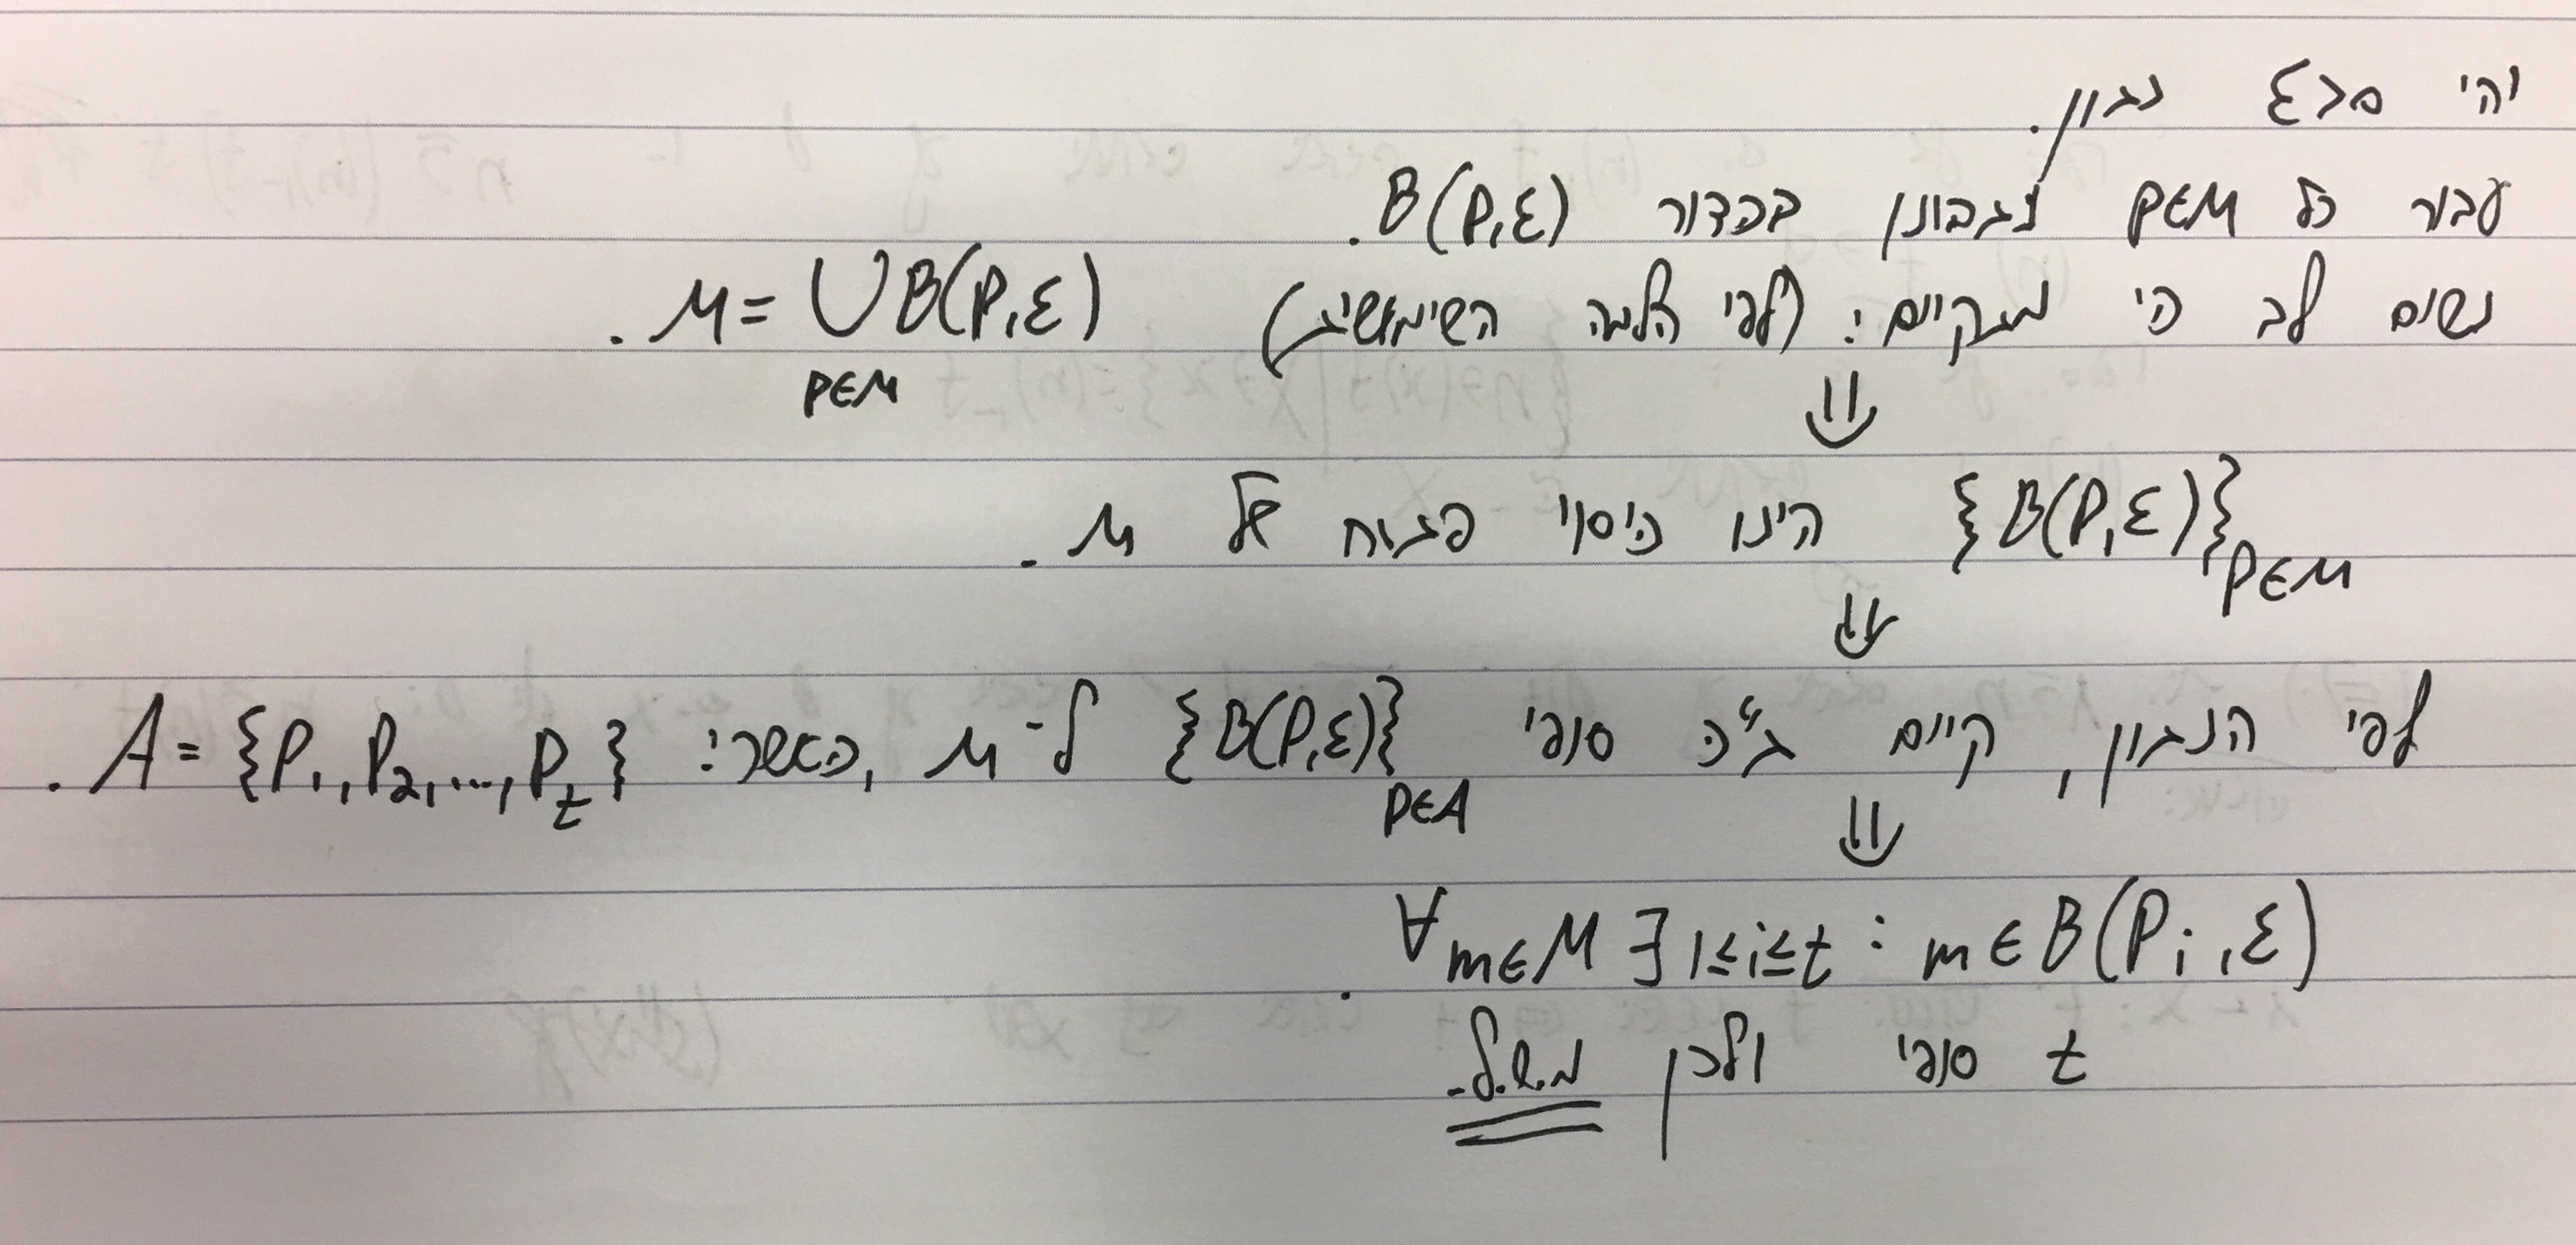 יהי ε>0 נתון.
עבור כל p∈M נתבונן בכדור B(p,ε).
נשים לב כי מתקיים: (לפי הלמה השימושית) M = ∪ B(p,ε).
p∈M
⇓
{B(p,ε)}p∈M הינו כיסוי פתוח של M.
⇓
לפי הנתון, קיים ת"כ סופי {B(p,ε)}p∈A ל-M, כאשר: A = {P₁, P₂, ..., Pt}.
⇓
∀m∈M ∃ 1≤i≤t : m∈B(Pi, ε).
t סופי ולכן מ.ש.ל.